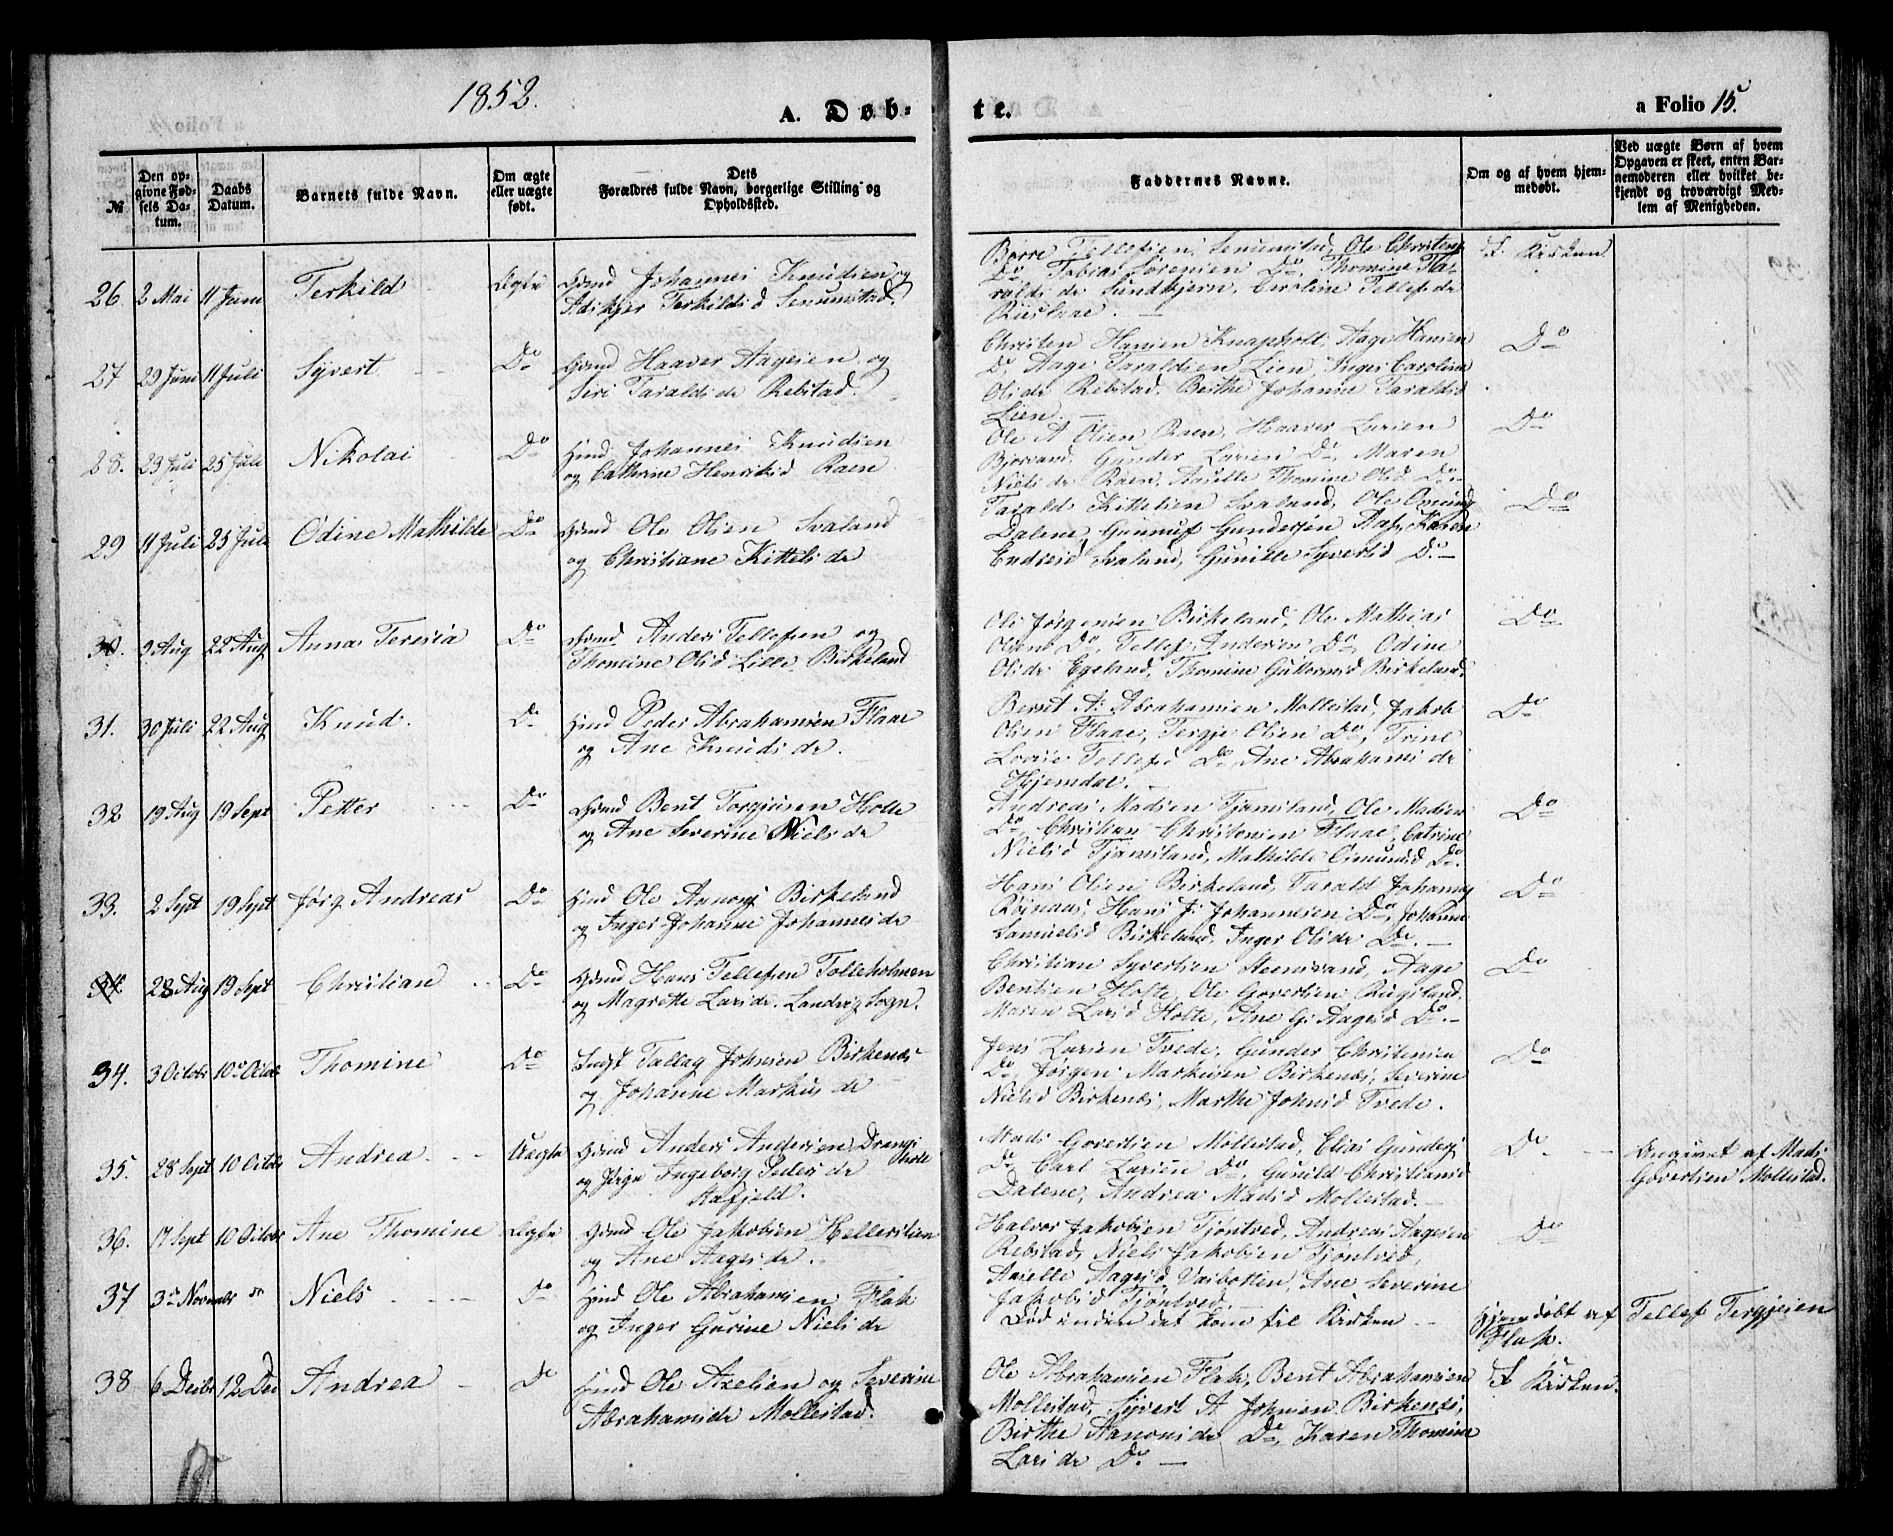 1852.
A. Døb-
te.
a Folio 15.
№
Den op-
givne Fød-
sels Da-
tum.
Daabs
Datum.
Barnets fulde Navn.
Om ægte
eller uægte
født.
Dets
Forældres fulde Navn, borgerlige Stilling og
Opholdssted.
Faddernes Navne.
Om og af hvem hjem-
medøbt.
Ved uægte Børn af hvem
Opgaven er skeet, enten Bar-
nemoderen eller hvilket be-
kjendt og troværdigt Med-
lem af Menigheden.
26 2 Mai 11 Juni Terkild Ægte Gmd Johannes Knudsen og
Terkildsd Senumstad.
Børre Tellefsen Senumstad, Ole Christens
Do Tobias Sørensen Do, Thomine Ta-
raldsdr Sundtjern, Caroline Tellefsdr
I Kirken
27 29 Juni 11 Juli Syvert Do Gmd Haaver Aagesen og
Siri Taraldsdr Rebstad.
Christen Hansen Knapholt, Aage Hansen
Do Aage Taraldsen Lien, Inger Caroline
Olsdr Rebstad, Berthe Johanne Taraldsd
Lien.
Do
28. 23 Juli 25 Juli Nikolai Do Hmd Johannes Knudsen
og Cathrine Henriksd Raen
Ole A Olsen Raen, Haaver Larsen
Bjorvand, Gunder Larsen Do, Maren
Nielsdr Raen, Aaselle Thomine Olsd Do
Do
29 11 Juli 25 Juli Odine Mathilde Do Gmd Ole Olsen Svaland
og Christiane Kittelsdr
Tarald Kittelsen Svaland, Ole Osmund
Dalene, Gunnuf Gundersen Aas, Karen
Endresd Svaland, Gunille Syvertsd Do
Do
30. 9 Aug 22 Aug Anna Teresia Do Gmd Anders Tellefsen og
Thomine Olsd Lille Birkeland
Ole Jørgensen Birkeland, Ole Mathias
Olsen Do, Tellef Andersen Do, Odine
Olsdr Egeland, Thomine Guttormsd Birkeland.
Do
31. 30 Juli 22 Aug Knud. Do Hmd Peder Abrahamsen Flaae
og Ane Knudsdr.
Berent A. Abrahamsen Mollestad, Jakob
Olsen Flaae, Tergje Olsen Do, Trine
Lovise Tellefsd Do, Ane Abrahamsdr
Hjemdal.
Do
32 19 Aug 19 Sept Petter Do Gmd Bent Torgjusen Holte
og Ane Severine Nielsdr
Andreas Madsen Tjamsland, Ole Madsen
Do, Christian Christensen Flaae, Catrine
Nielsd Tjamsland, Mathilde Osmunsd Do.
Do
33. 2 Sept 19 Sept Jørg. Andreas Do Hmd Ole Aanons Birkeland
og Inger Johanne Johannesdr
Hans Olsen Birkeland, Tarald Johannes
Røinaas, Hans J. Johannesen Do, Johanne
Samuelsd Birkeland, Inger Olsdr Do.
Do
34. 28 Aug 19 Sept Christian Do Gmd Hans Tellefsen Tolleholmen
og Magrette Larsdr. Landvig Sogn.
Christian Syvertsen Steensvand, Aage
Bentsen Holte, Ole Govertsen Rugsland,
Maren Larsd Holte, Ane G. Aagesd Do.
Do
34. 3 Octobr 10 Octobr Thomine Do Inst Tallag Johnsen Birkenes
og Johanne Markusdr
Jens Larsen Tvede, Gunder Christensen
Do, Jørgen Markusen Birkenes, Severine
Nielsd Birkenes, Marthe Johnsd Tvede.
Do
35. 28 Sept 10 Octobr Andrea Uægte Gmd Anders Andersen Drangs
holt
og Pige Ingeborg Pedersdr
Mads Govertsen Mollestad, Elias Gunders
Do, Carl Larsen Do, Gunild Christians
Dalene, Andrea Madsd Mollestad.
Do
Angivet af Mads
Govertsen Mollestad.
36. 17 Sept 10 Octobr Ane Thomine Ægte Gmd Ole Jakobsen Hellerslien
og Ane Aagesdr.
Halvor Jakobsen Tjøntved, Andreas Aagesen
Rebstad, Niels Jakobsen Tjøntved,
Aaselle Aagesd Vasbotten, Ane Severine
Jakobsd Tjøntved
Do
37 3 Novembr Niels Do Hmd Ole Abrahamsen Flak
og Inger Gurine Nielsdr
Død inden det kom til Kirken
Hjemdøbt af
Flak.
Tellef Tergjesen
38 6 Decbr 12 Dec Andrea Do Hmd Ole Axelsen og Severine
Abrahamsdr Mollestad.
Ole Abrahamsen Flak, Bent Abrahamsen
Mollestad, Syvert A Johnsen Birkenes,
Birthe Aanonsdr Do, Karen Thomine
Larsdr Do.
I Kirken